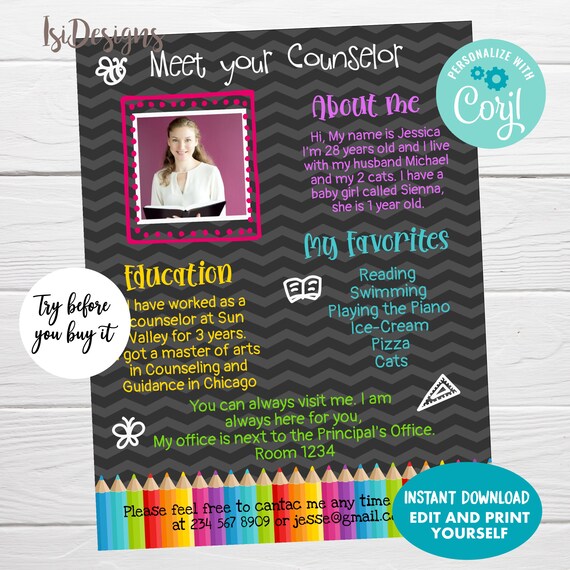 IsiDesigns
Meet your Counselor
PERSONALIZE WITH
Corjl
About Me
Hi, My name is Jessica
I'm 28 years old and I live
with my husband Michael
and my 2 cats. I have a
baby girl called Sienna,
she is 1 year old.
My Favorites
Reading
Swimming
Playing the Piano
Ice-Cream
Pizza
Cats
Education
I have worked as a
counselor at Sun
Valley for 3 years.
got a master of arts
in Counseling and
Guidance in Chicago
Try before
you buy it
You can always visit me. I am
always here for you,
My office is next to the Principal's Office.
Room 1234
Please feel free to cantac me any time
at 234 567 8909 or jesse@gmail.co
INSTANT DOWNLOAD
EDIT AND PRINT
YOURSELF